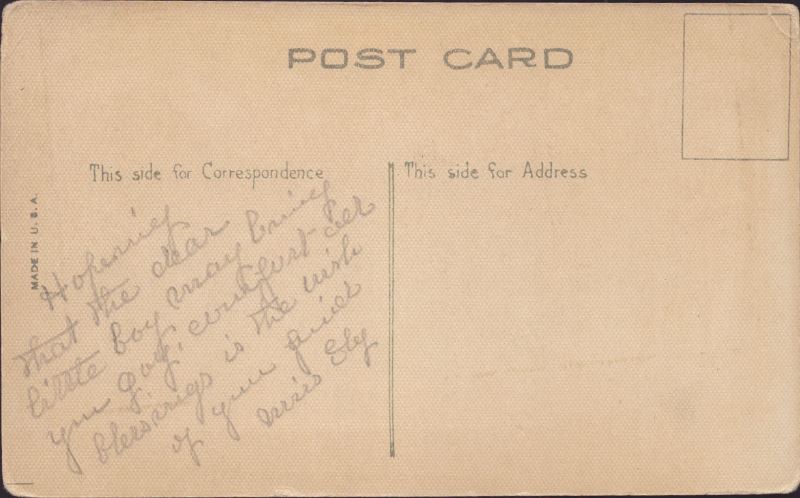 POST CARD
This side for Correspondence
This side for Address
MADE IN U.S.A.
Hopeing
that the dear
little boy may bring
you joy, comfort
blessings is the wish
of your friend
miss Ely